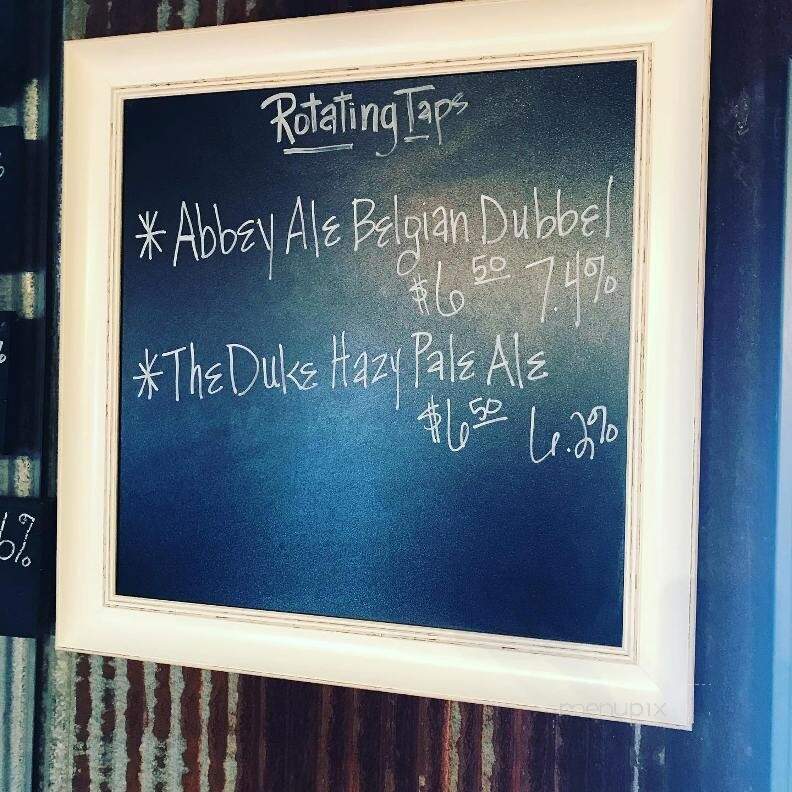 Rotating Taps
* Abbey Ale Belgian Dubbel
$6 50 7.4%
* The Duke Hazy Pale Ale
$6 50 6.2%
6%
menupix